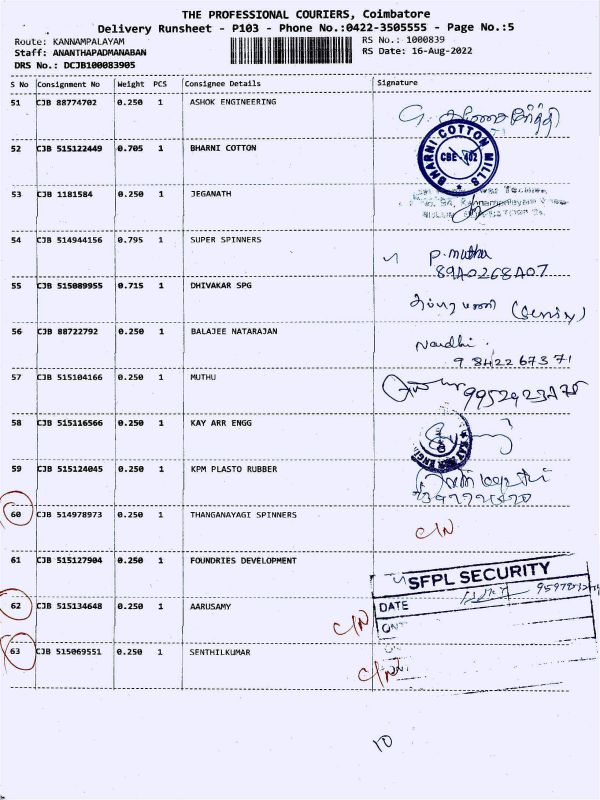 THE PROFESSIONAL COURIERS, Coimbatore
Delivery Runsheet - P103 - Phone No.:0422-3505555 - Page No.:5
Route: KANNAMPALAYAM RS No.: 1000839
Staff: ANANTHAPADMANABAN RS Date: 16-Aug-2022
DRS No.: DCJB100083905
S No Consignment No Weight PCS Consignee Details Signature
51 CJB 88774702 0.250 1 ASHOK ENGINEERING
52 CJB 515122449 0.705 1 BHARNI COTTON
BHARNI COTTON MILLS
CBE - 402
53 CJB 1181584 0.250 1 JEGANATH
54 CJB 514944156 0.795 1 SUPER SPINNERS
P. muthu
55 CJB 515089955 0.715 1 DHIVAKAR SPG
56 CJB 88722792 0.250 1 BALAJEE NATARAJAN
Nandhi.
9842267371
57 CJB 515104166 0.250 1 MUTHU
58 CJB 515116566 0.250 1 KAY ARR ENGG
59 CJB 515124045 0.250 1 KPM PLASTO RUBBER
60 CJB 514978973 0.250 1 THANGANAYAGI SPINNERS
C/N
61 CJB 515127904 0.250 1 FOUNDRIES DEVELOPMENT
SFPL SECURITY
DATE
62 CJB 515134648 0.250 1 AARUSAMY
C/N
63 CJB 515069551 0.250 1 SENTHILKUMAR
C/N
10